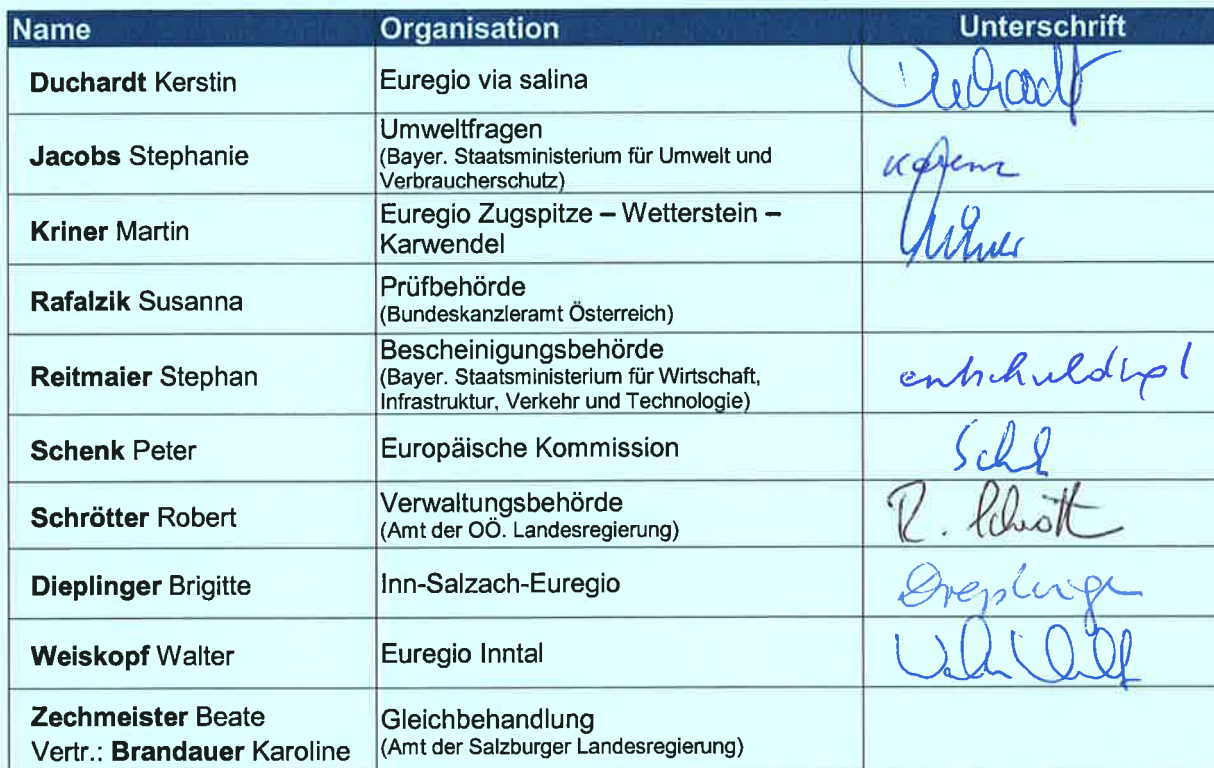 Name Organisation Unterschrift
Duchardt Kerstin Euregio via salina Duchardt
Jacobs Stephanie Umweltfragen
(Bayer. Staatsministerium für Umwelt und
Verbraucherschutz)
Kriner Martin Euregio Zugspitze – Wetterstein –
Karwendel Kriner
Rafalzik Susanna Prüfbehörde
(Bundeskanzleramt Österreich)
Reitmaier Stephan Bescheinigungsbehörde
(Bayer. Staatsministerium für Wirtschaft, entschuldigt
Infrastruktur, Verkehr und Technologie)
Schenk Peter Europäische Kommission
Schrötter Robert Verwaltungsbehörde
(Amt der OÖ. Landesregierung) R. Schrött
Dieplinger Brigitte Inn-Salzach-Euregio Dieplinger
Weiskopf Walter Euregio Inntal
Zechmeister Beate Gleichbehandlung
Vertr.: Brandauer Karoline (Amt der Salzburger Landesregierung)